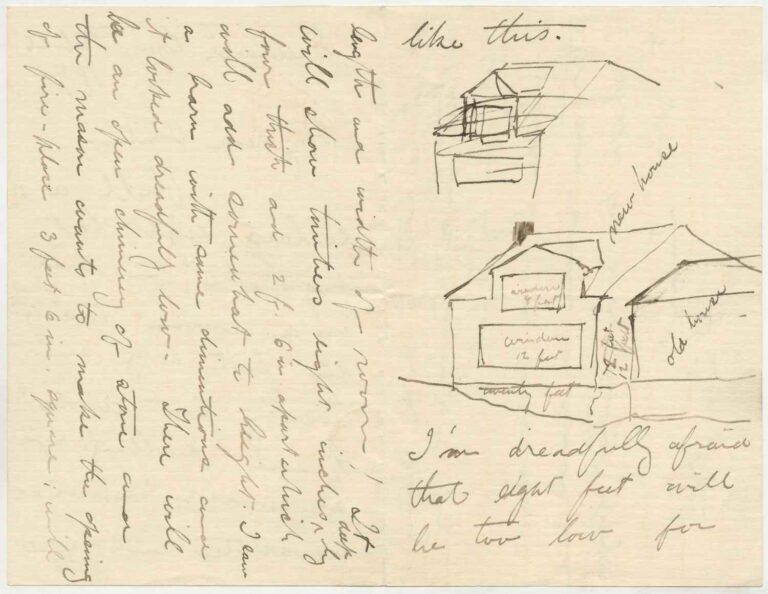 like this.
new house
window
8 feet
window
12 feet
12 feet
old house
twenty feet
I'm dreadfully afraid
that eight feet will
be too low for
length and width of room! It
will show timbers eight inches deep by
four thick and 2 ft. 6 in apart which
will add somewhat to height. I saw
a barn with same dimentions and
it looked dreadfully low - There will
be an open chimney of stone and
the mason wants to make the opening
of fire-place 3 feet 6 in. square; will